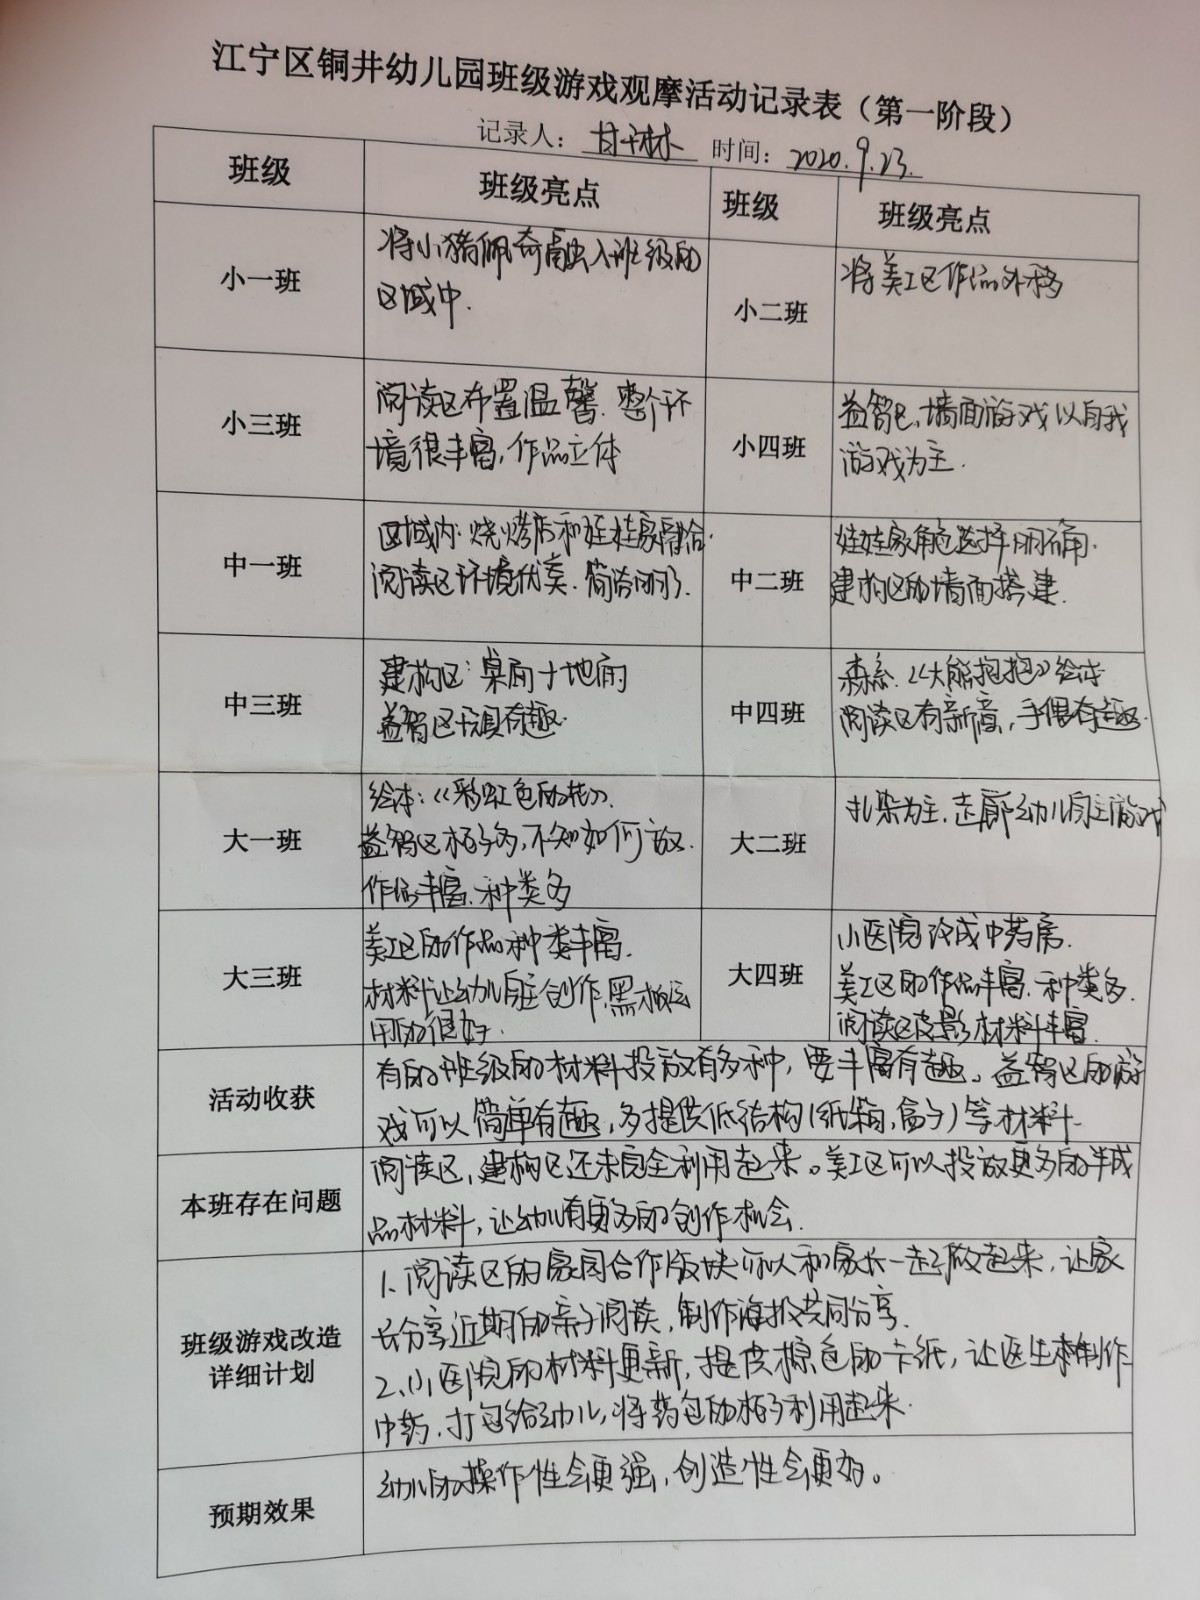 江宁区铜井幼儿园班级游戏观摩活动记录表（第一阶段）
记录人： 时间：2020.9.23.
班级 班级亮点 班级 班级亮点
小一班
将小猪佩奇融入班级的
区域中.
小二班
将美工区作品外移
小三班
阅读区布置温馨.整个环
境很丰富,作品立体
小四班
益智区,墙面游戏以自我
游戏为主.
中一班
区域内:烧烤店和娃娃家融合.
阅读区环境优美.简洁明了.
中二班
娃娃家角色选择明确.
建构区的墙面搭建.
中三班
建构区:桌面+地面
益智区玩具有趣.
中四班
森系.《大熊抱抱》绘本
阅读区有新意,手偶有趣.
大一班
绘本:《彩虹色的花》.
益智区柜子多,不知如何放.
作品丰富.种类多
大二班
扎染为主,走廊幼儿自主游戏
大三班
美工区的作品种类丰富.
材料让幼儿自主创作,黑板运
用的很好.
大四班
小医院改成中药房.
美工区的作品丰富.种类多.
阅读区皮影材料丰富.
活动收获
有的班级的材料投放有多种,要丰富有趣。益智区的游
戏可以简单有趣,多提供低结构(纸箱,盒子)等材料
本班存在问题
阅读区,建构区还未完全利用起来。美工区可以投放更多的半成
品材料,让幼儿有更多的创作机会.
班级游戏改造
详细计划
1、阅读区的家园合作版块可以和家长一起做起来,让家
长分享近期的亲子阅读,制作海报共同分享.
2、小医院的材料更新,提供棕色的卡纸,让医生来制作
中药.打包给幼儿,将药包的柜子利用起来.
预期效果
幼儿的操作性会更强,创造性会更好。